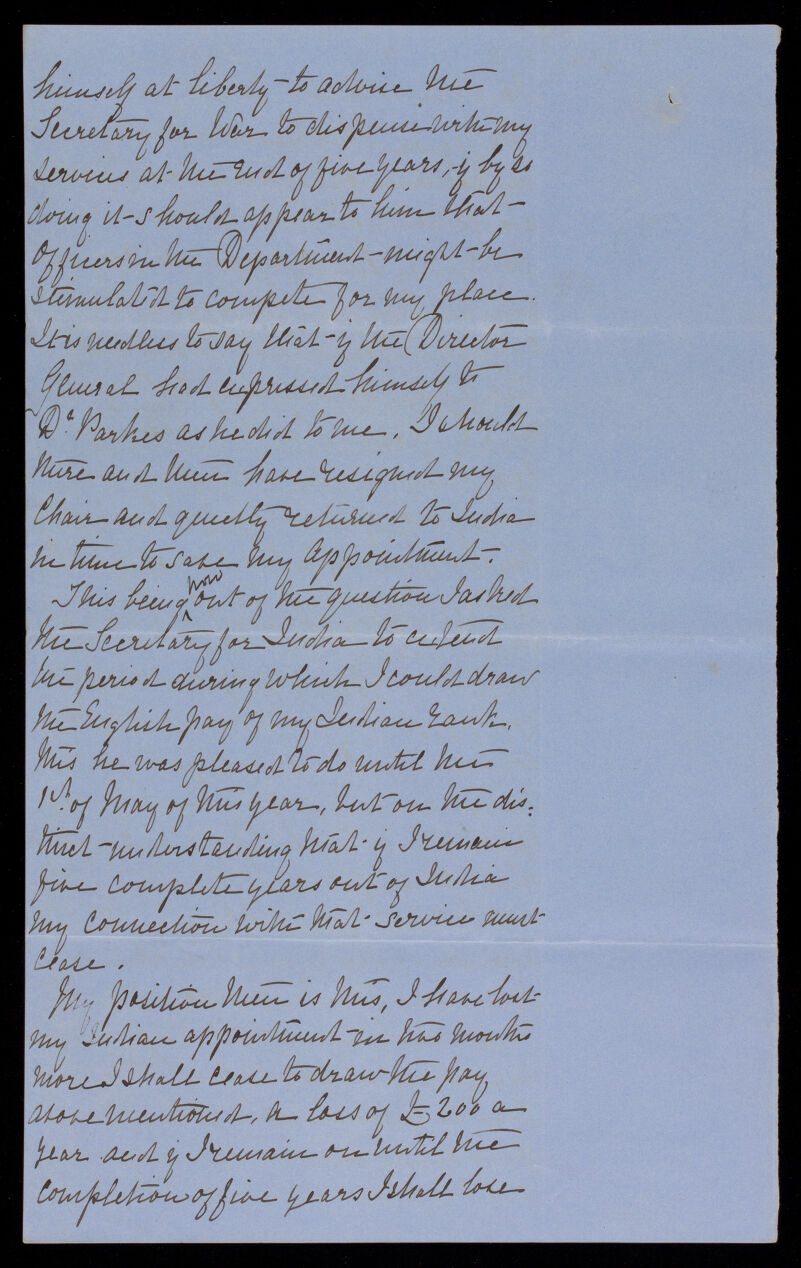 himself at liberty to advise the
Secretary for War to dispense with my
services at the end of five years, if by so
doing it should appear to him that
Officers in the Department might be
stimulated to compete for my place.
It is needless to say that if the Director
General had expressed himself to
Dr. Parkes as he did to me, I should
there and then have resigned my
Chair and quietly returned to India
in time to save my appointment.
This being now out of the question I asked
the Secretary for India to extend
the period during which I could draw
the English pay of my Indian rank,
this he was pleased to do until the
1st. of May of this year, but on the dis:
tinct understanding that if I remain
five complete years out of India
my connection with that service must
cease.
My position then is this, I have lost
my Indian appointment in two months
more I shall cease to draw the pay
above mentioned, a loss of £200 a
year and if I remain on until the
completion of five years I shall lose